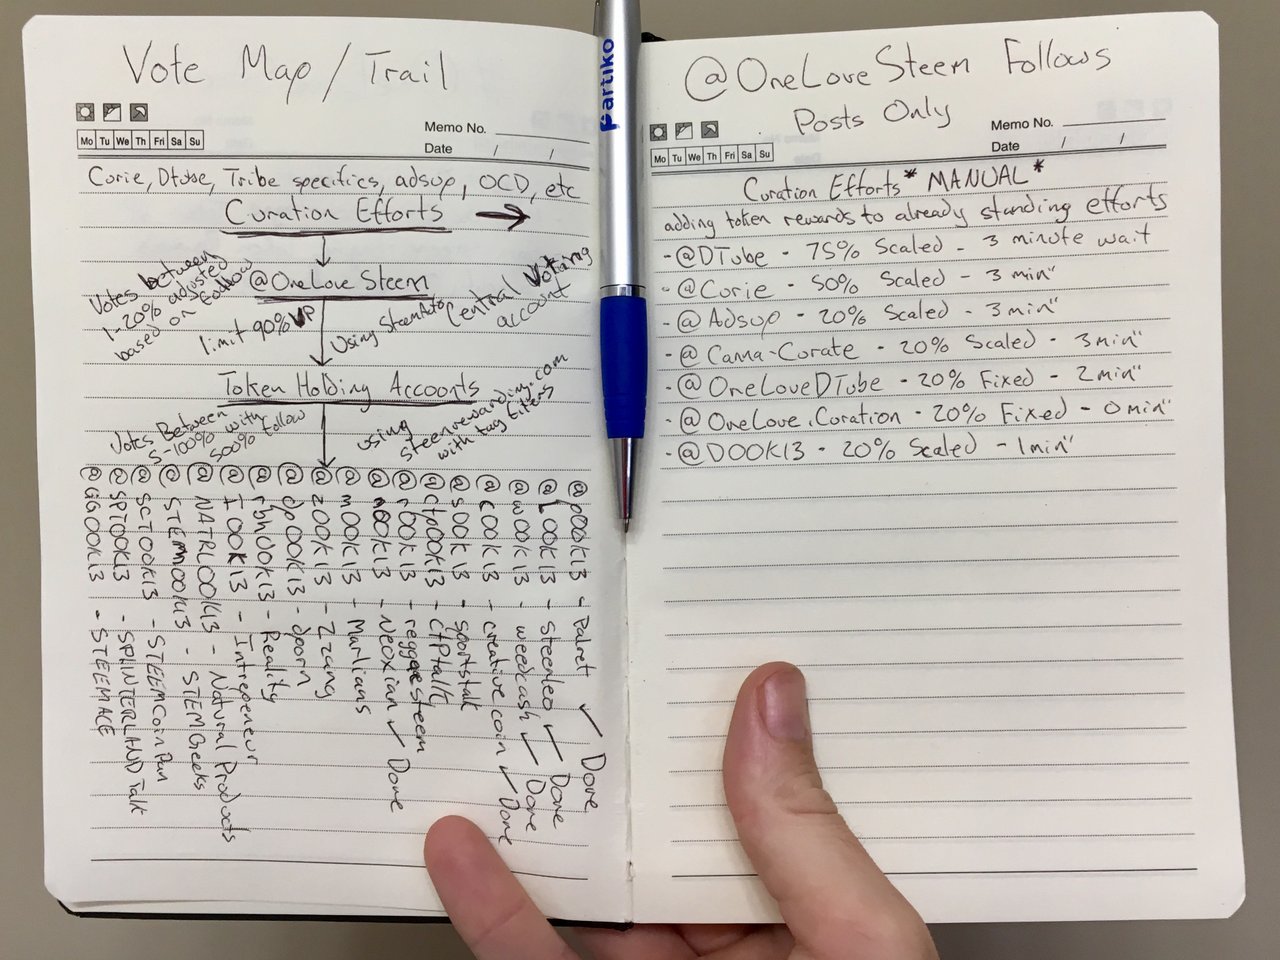 Vote Map / Trail
Memo No.
Mo Tu We Th Fri Sa Su
Date / /
Curie, Dtube, Tribe specifics, adsup, OCD, etc
Curation Efforts →
Votes between
1-20% adjusted
based on follow
@OneLoveSteem
limit 90% VP
Using SteemAuto
Central Voting
account
Token Holding Accounts
Votes Between
5-100% with
500% follow
using
steemrewarding.com
with tag filters
@p00k13 - Palnet ✓ Done
@L00k13 - Steemleo ✓ Done
@w00k13 - weedcash ✓ Done
@c00k13 - creative coin ✓ Done
@s00k13 - sportstalk
@ctp00k13 - ctptalk
@r00k13 - reggaesteem
@n00k13 - Neoxian ✓ Done
@m00k13 - Marlians
@z00k13 - Zzang
@dp00k13 - dporn
@rbn00k13 - Reality
@I00k13 - Intrepeneur
@NATRL00k13 - Natural Products
@STEM00k13 - STEMGeeks
@SCT00k13 - STEEMCoinPan
@SPT00k13 - SPLINTERLANDTalk
@GG00k13 - STEEMACE
Partiko
@OneLoveSteem Follows
Posts Only
Memo No.
Mo Tu We Th Fri Sa Su
Date / /
Curation Efforts *MANUAL*
adding token rewards to already standing efforts
- @DTube - 75% Scaled - 3 minute wait
- @Curie - 50% Scaled - 3 min"
- @Adsup - 20% Scaled - 3min"
- @Canna-Curate - 20% Scaled - 3min"
- @OneLoveDTube - 20% Fixed - 2min"
- @OneLove.Curation - 20% Fixed - 0min"
- @D00K13 - 20% Scaled - 1min"